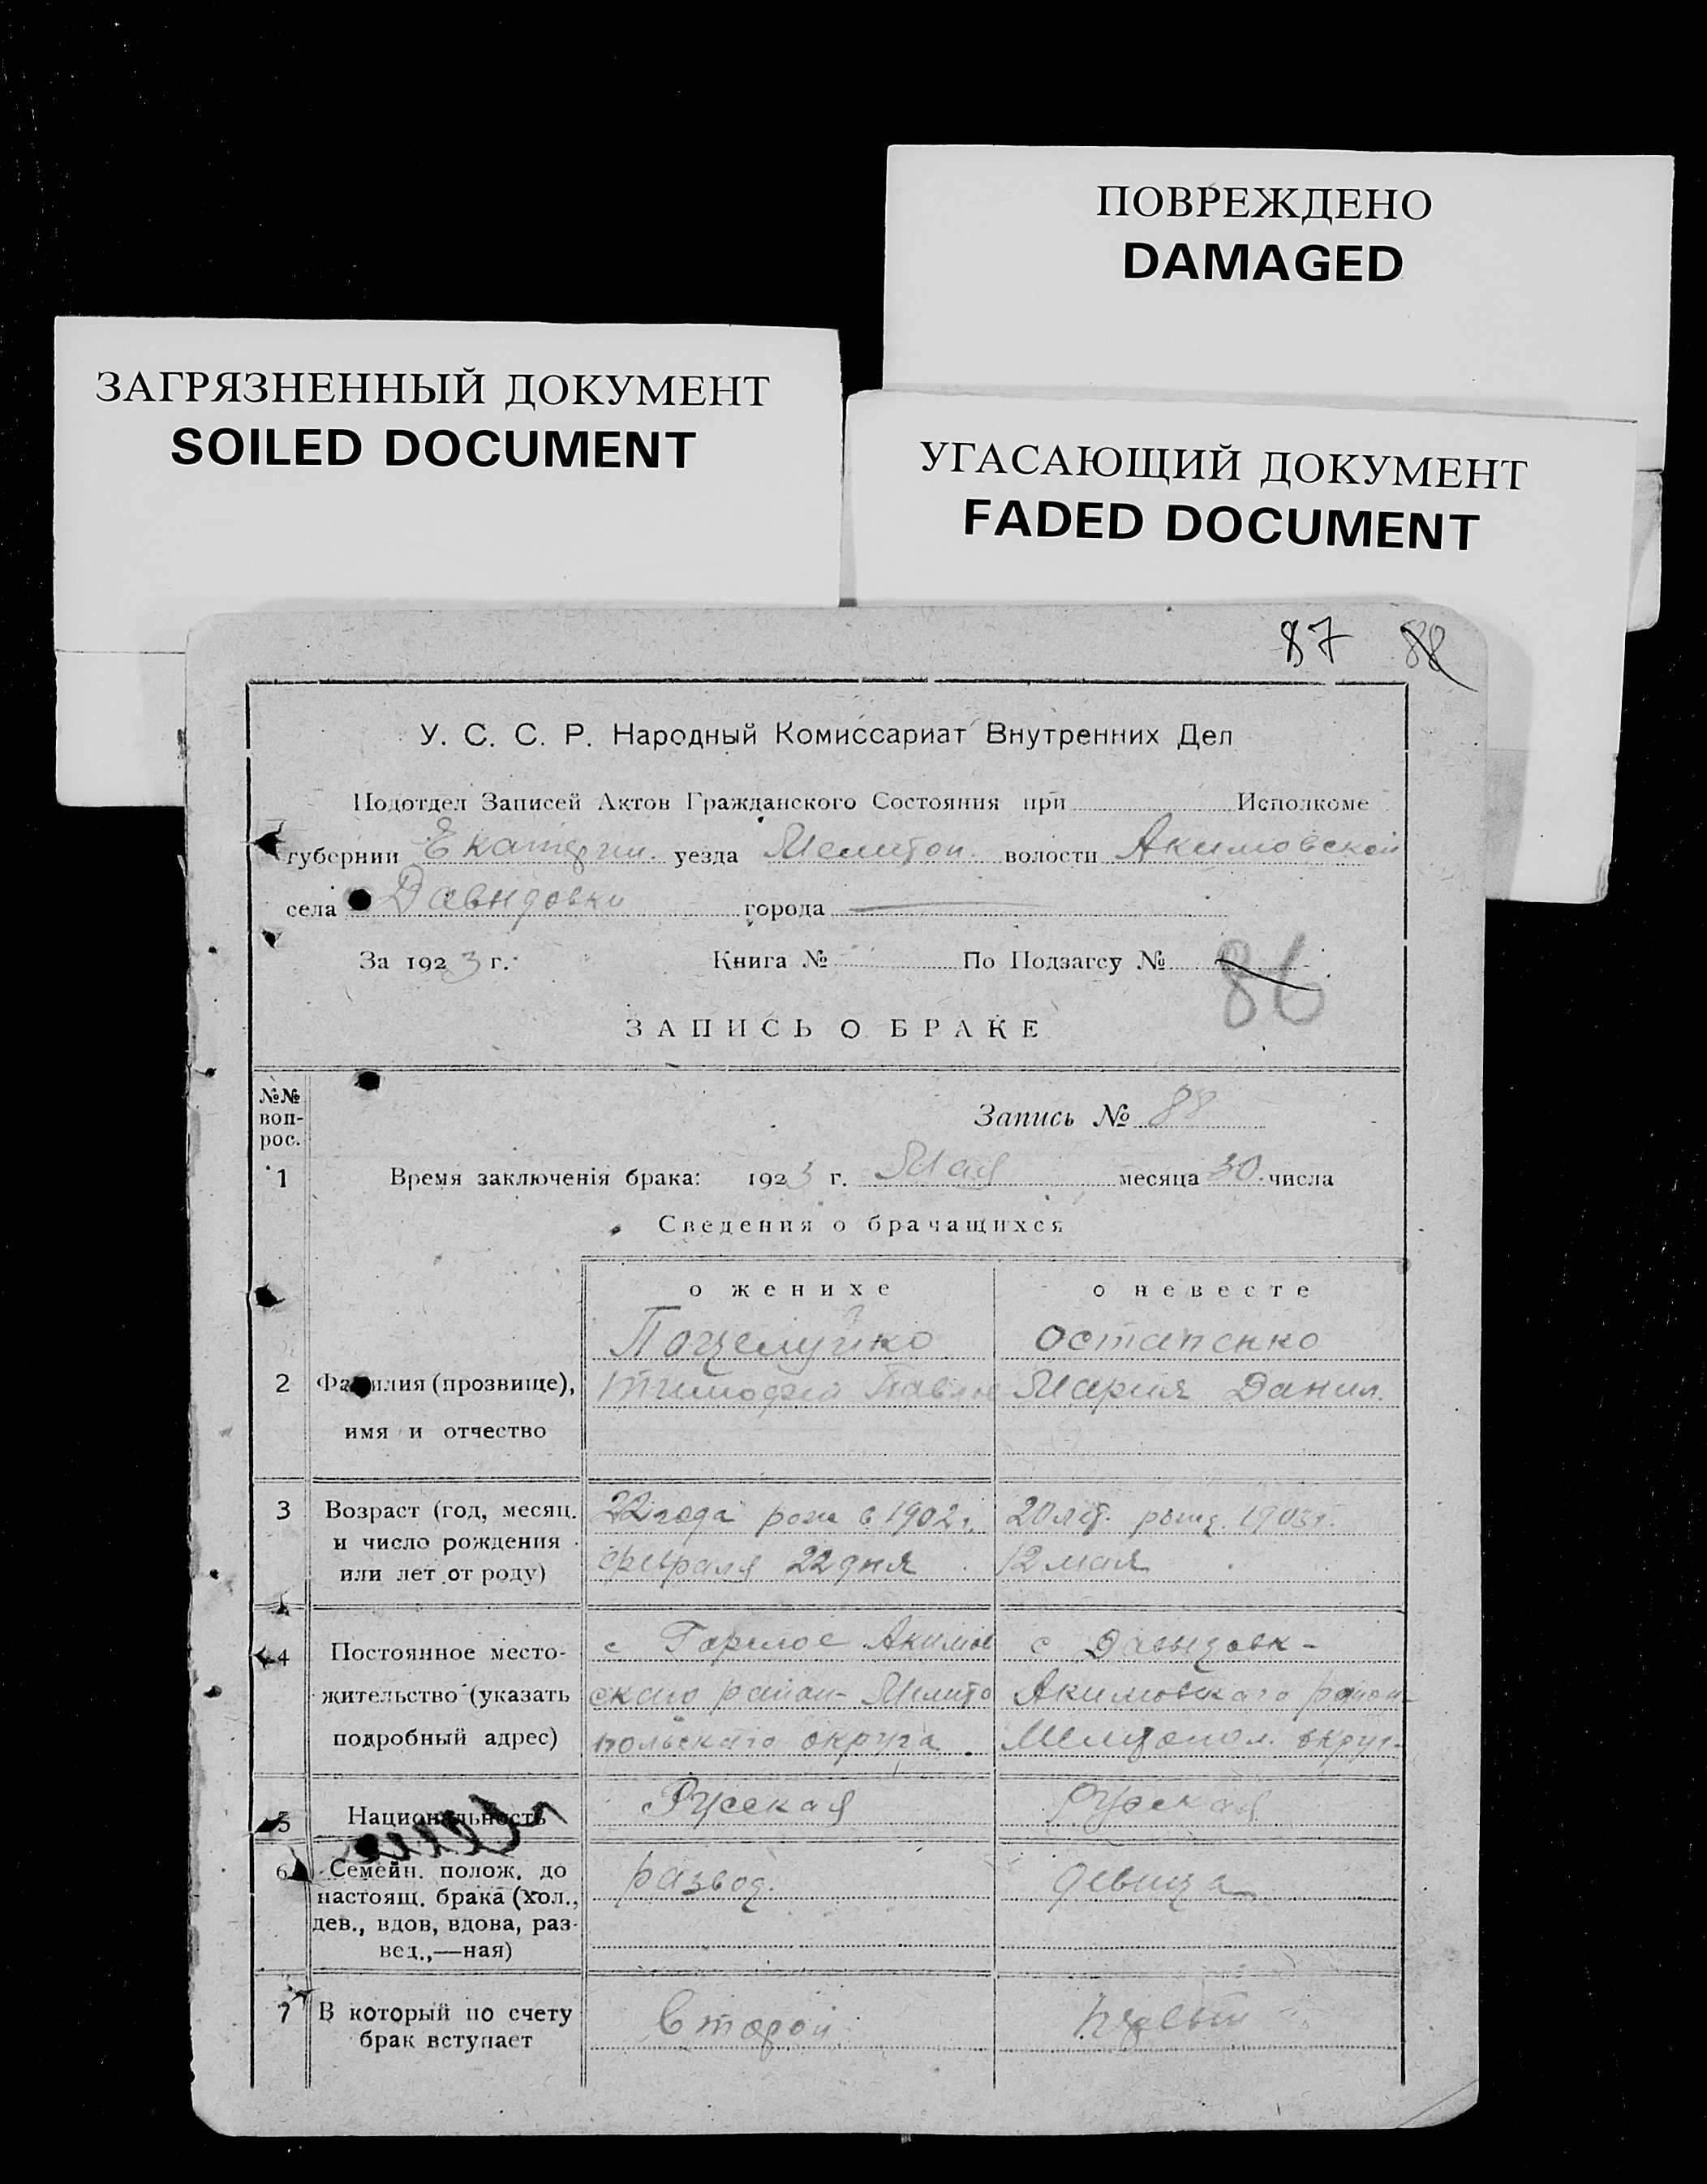 ПОВРЕЖДЕНО
DAMAGED
ЗАГРЯЗНЕННЫЙ ДОКУМЕНТ
SOILED DOCUMENT
УГАСАЮЩИЙ ДОКУМЕНТ
FADED DOCUMENT
87 88
У. С. С. Р. Народный Комиссариат Внутренних Дел
Подотдел Записей Актов Гражданского Состояния при Исполкоме
губернии Екатерин. уезда Мелитоп. волости Акимовской
села Давыдовки города
За 1923 г. Книга № По Подзагсу № 86
ЗАПИСЬ О БРАКЕ
№№ воп-рос.
Запись № 88
1 Время заключенія брака: 1923 г. Мая месяца 30 числа
Сведения о брачащихся
о женихе о невесте
Поцелуйко Остапенко
2 Фамилия (прозвище), Тимофей Павлов Мария Данил.
имя и отчество
3 Возраст (год, месяц. 22 года рож в 1902 г. 20 лет. рожд. 1903 г.
и число рождения февраля 22 дня 12 мая
или лет от роду)
4 Постоянное место- с Горелое Акимов с Давыдовк-
жительство (указать скаго район- Мелито Акимовскаго район-
подробный адрес) польскаго округа. Мелитопол. округ-
5 Национальность Русская Русская
6 Семейн. полож. до развод. девица
настоящ. брака (хол.,
дев., вдов, вдова, раз-
вед.,—ная)
7 В который по счету второй первый
брак вступает